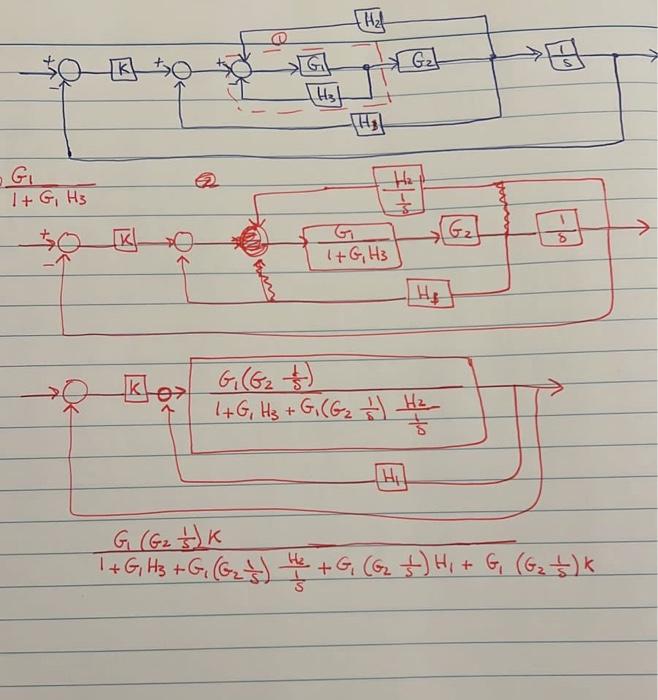 H2
①
+ K + + G1 G2 1/s
-
H3
H1
G1/(1 + G1 H3)
②
H2/(1/s)
+ K G1/(1 + G1 H3) G2 1/s
-
H1
K G1(G2 1/s)/(1 + G1 H3 + G1(G2 1/s) H2/(1/s))
H1
G1 (G2 1/s) K
1 + G1 H3 + G1(G2 1/s) H2/(1/s) + G1 (G2 1/s) H1 + G1 (G2 1/s) K